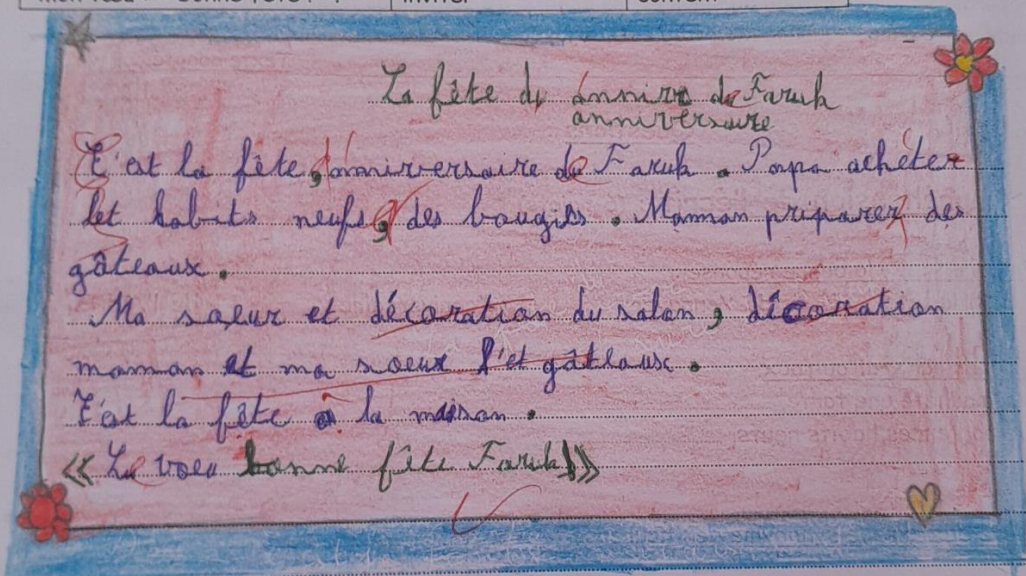 La fête de annire de Faruk
anniversaire
C'est la fête, d'anniversaire de Faruk. Papa achéter
let habits neufs, des bougies. Maman priparer des
gâteaux.
Ma saeur et décoration du salon, décoration
maman et ma soeur l'et gâteaux.
C'est la fête à la maison.
« Le voeu bonne fête Faruk! »